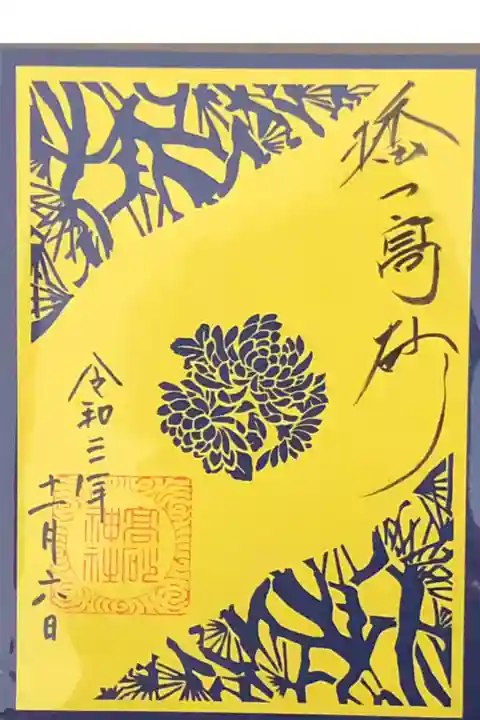 播州高砂
令和三年
十一月六日
高砂
神社